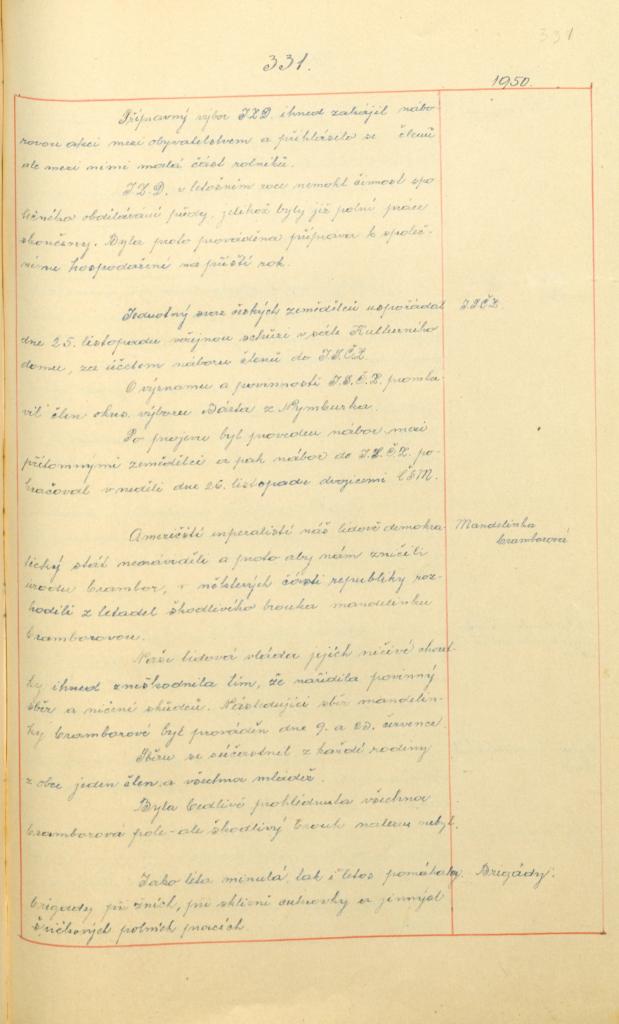 331
331.
1950.
Přípravný výbor J.Z.D. ihned zahájil nábo-
rovou akci mezi obyvatelstvem a přihlásilo se členů
ale mezi nimi malá část rolníků.
J.Z.D. v letošním roce nemohl činnost spo-
lečného obdělávání půdy, jelikož byly již polní práce
skončeny. Byla proto prováděna příprava k společ-
nému hospodaření na příští rok.
Jednotný svaz českých zemědělců uspořádal
J.S.Č.Z.
dne 25. listopadu veřejnou schůzi v sále Kulturního
domu, za účelem náboru členů do J.S.Č.Z.
O významu a povinnosti J.S.Č.Z. promlu-
vil člen okres. výboru Bárta z Nymburka.
Po projevu byl proveden nábor mezi
přítomnými zemědělci a pak nábor do J.S.Č.Z. po-
kračoval v neděli dne 26. listopadu dvojicemi ČSM.
Američtí inperalisti náš lidově demokra-
Mandelinka
bramborová
tický stát nenáviděli a proto aby nám zničili
úrodu brambor, v některých části republiky roz-
hodili z letadel škodlivého brouka mandelinku
bramborovou.
Naše lidová vláda jejich ničivé chout-
ky ihned zneškodnila tím, že nařídila povinný
sběr a ničení škůdců. Následující sběr mandelin-
ky bramborové byl prováděn dne 9. a 23. července.
Sběru se súčastnil z každé rodiny
z obce jeden člen a všechna mládež.
Byla bedlivě prohlédnuta všechna
bramborová pole - ale škodlivý brouk nalezen nebyl.
Jako léta minulá, tak i letos pomáhaly
Brigády.
brigády při žních, při sklizni cukrovky a jinných
špičkových polních pracích.